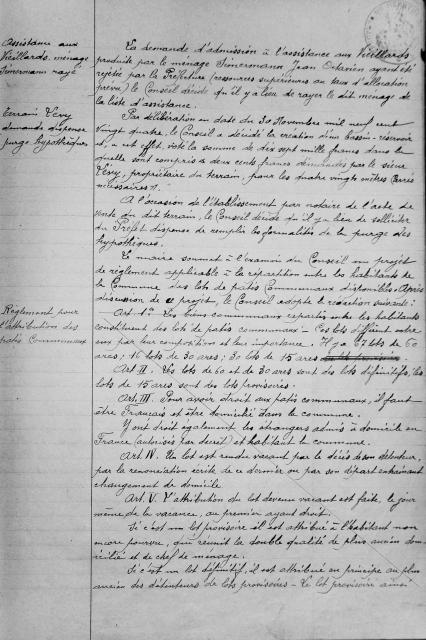 Assistance aux
Vieillards. ménage
Simermann rayé
La demande d'admission à l'assistance aux Vieillards
produite par le ménage Simermann Jean Octavien ayant été
rejetée par la Préfecture (ressources supérieures au taux d'allocation
prévu) le Conseil décide qu'il y a lieu de rayer le dit ménage de
la liste d'assistance.
Terrain Lévy
demande dispense
purge hypothèques
Par délibération en date du 30 Novembre mil neuf cent
vingt quatre, le Conseil a décidé la création d'un bassin-réservoir
et, à cet effet, voté la somme de dix sept mille francs dans la
quelle sont compris deux cents francs demandés par le sieur
Lévy, propriétaire du terrain, pour les quatre vingts mètres carrés
nécessaires.
A l'occasion de l'établissement par notaire de l'acte de
vente du dit terrain, le Conseil décide qu'il y a lieu de solliciter
du Préfet dispense de remplir les formalités de la purge des
hypothèques.
Le maire soumet à l'examen du Conseil un projet
de règlement applicable à la répartition entre les habitants de
la Commune des lots de patis Communaux disponibles. Après
discussion de ce projet, le Conseil adopte la rédaction suivante :
Règlement pour
l'attribution des
patis Communaux
Art. 1er Les biens communaux répartis entre les habitants
constituent des lots de patis communaux - Ces lots diffèrent entre
eux par leur composition et leur importance. Il y a 9 lots de 60
ares ; 16 lots de 30 ares ; 30 lots de 15 ares
Art II. Les lots de 60 et de 30 ares sont des lots définitifs, les
lots de 15 ares sont des lots provisoires.
Art. III. Pour avoir droit aux patis communaux, il faut
être Français et être domicilié dans la commune.
Y ont droit également les étrangers admis à domicile en
France (autorisés par décret) et habitant la commune.
Art. IV. Un lot est rendu vacant par le décès de son détenteur,
par la renonciation écrite de ce dernier ou par son départ entraînant
changement de domicile
Art. V. L'attribution du lot devenu vacant est faite, le jour
même de la vacance, au premier ayant droit.
Si c'est un lot provisoire il est attribué à l'habitant non
encore pourvu, qui réunit la double qualité de plus ancien domi-
cilié et de chef de ménage.
Si c'est un lot définitif, il est attribué en principe au plus
ancien des détenteurs de lots provisoires - Le lot provisoire ainsi